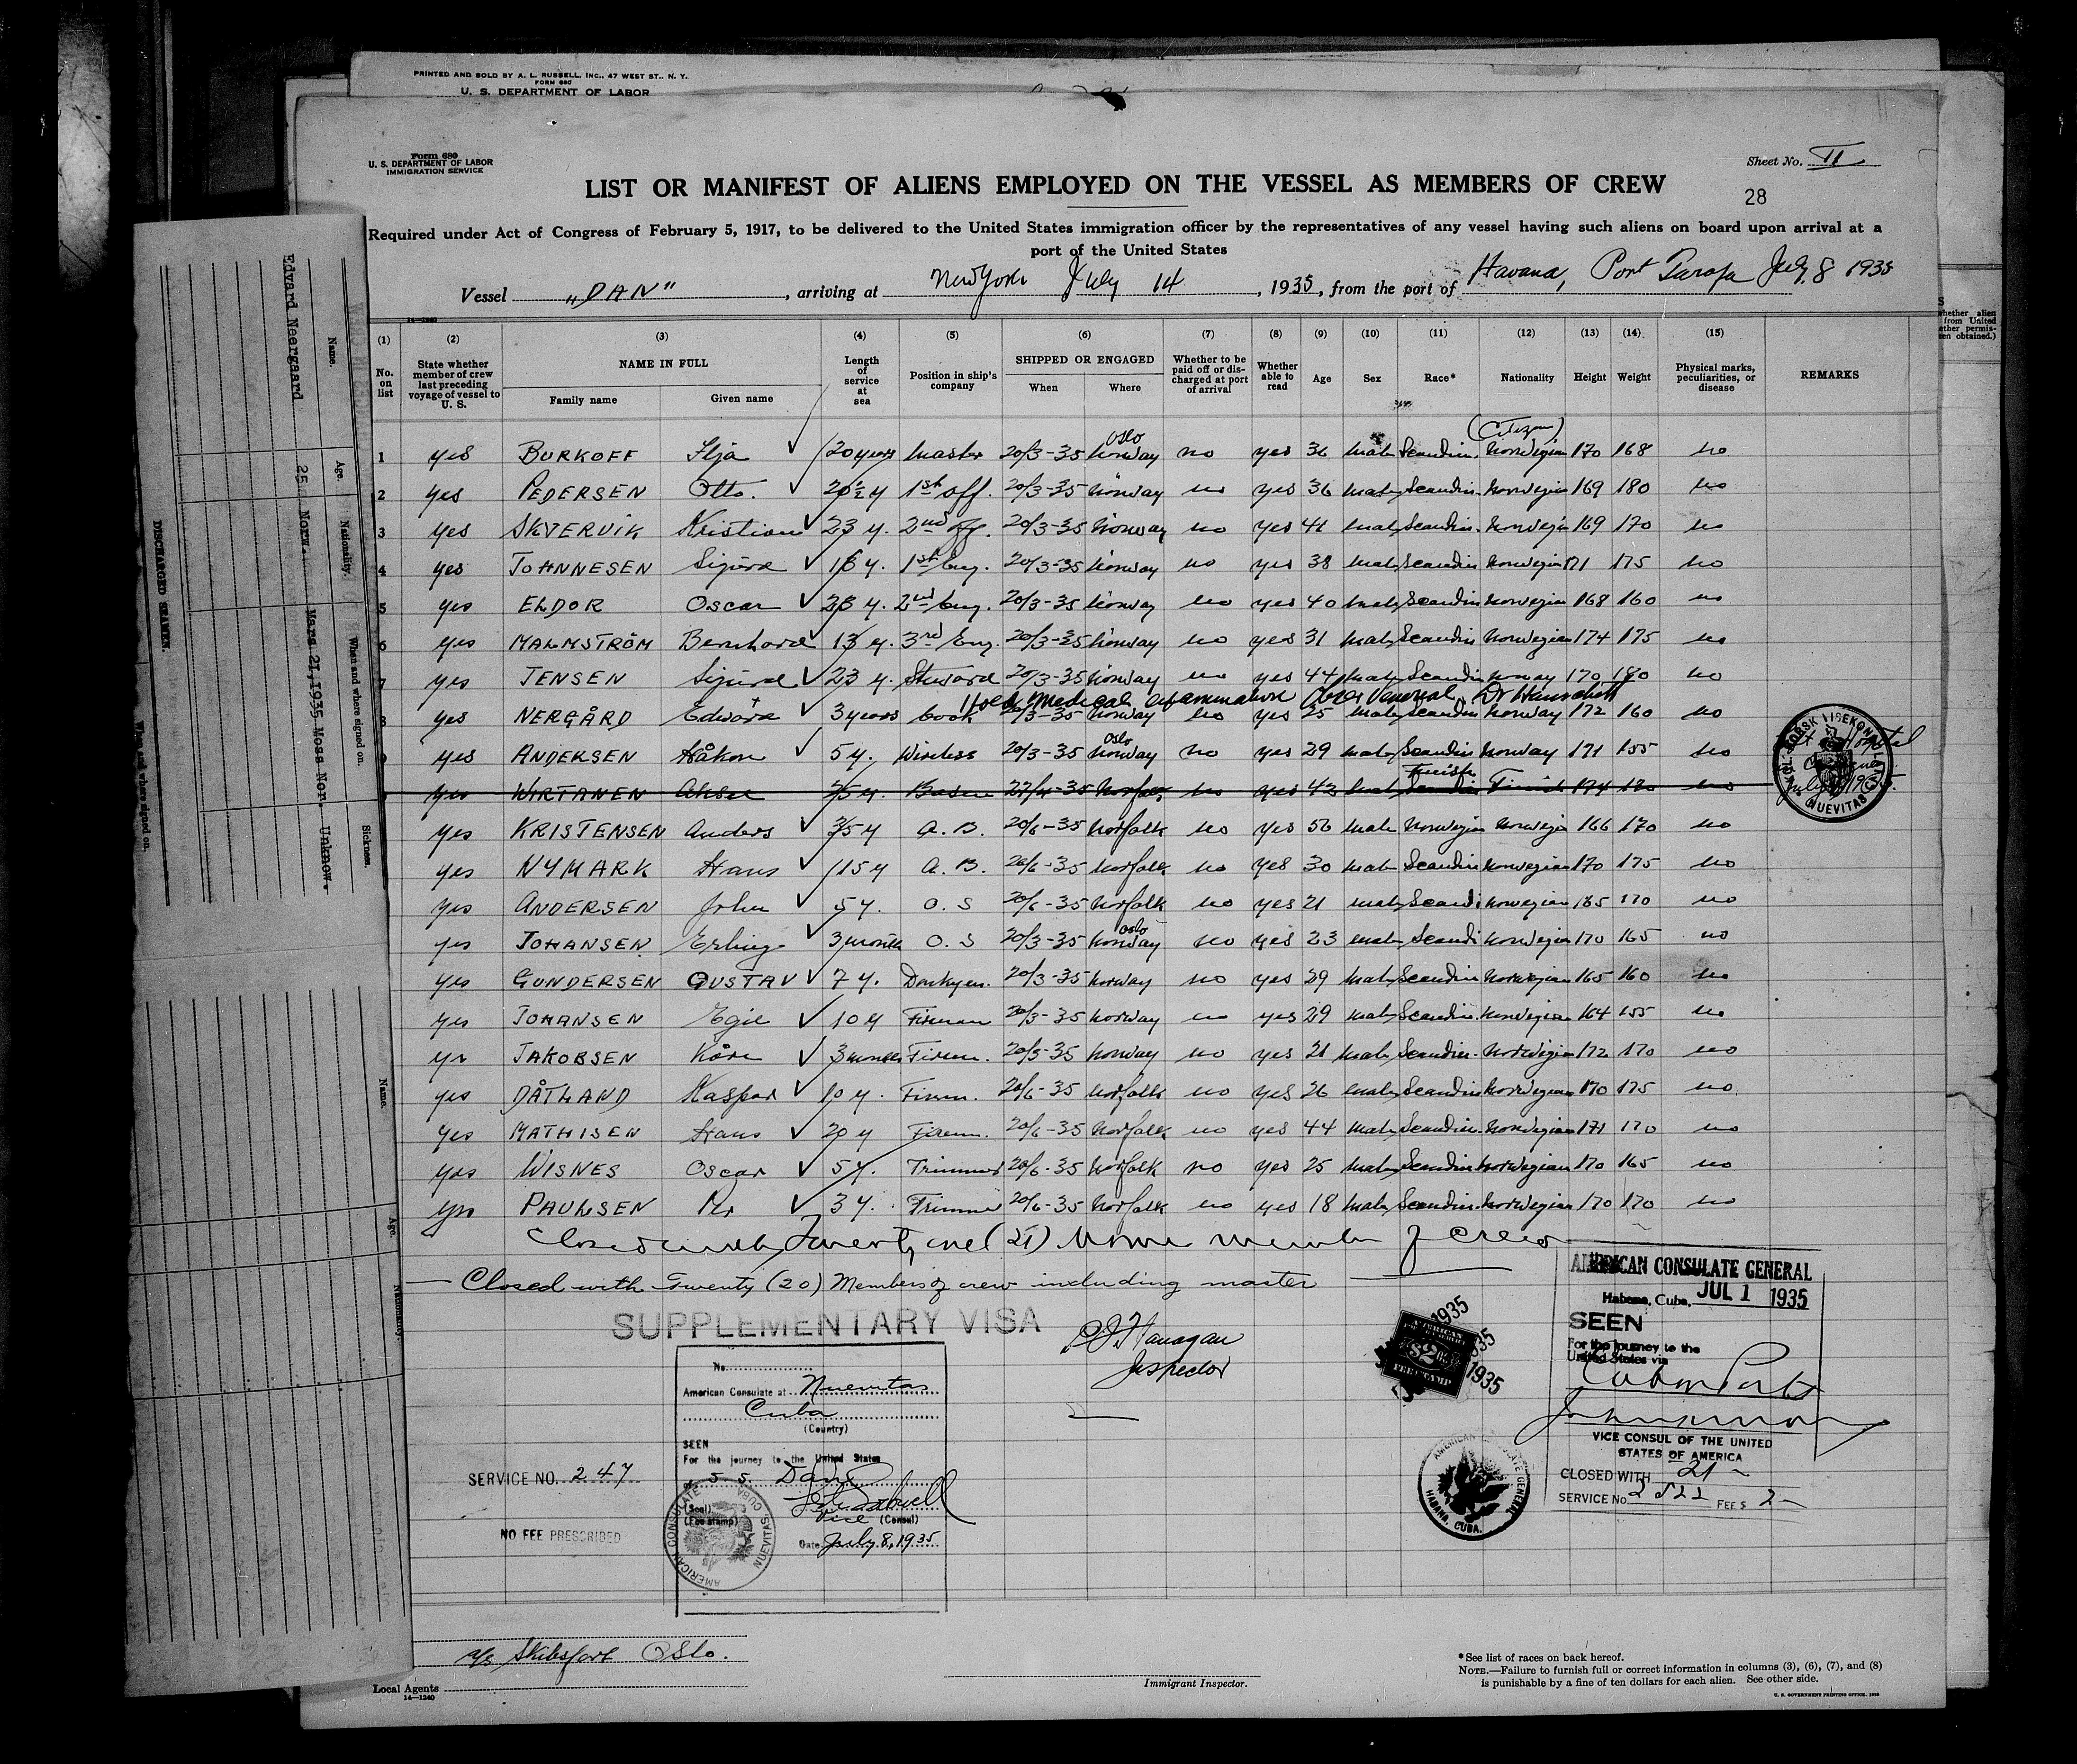 PRINTED AND SOLD BY A. L. RUSSELL, INC., 47 WEST ST., N. Y.
FORM 680
U. S. DEPARTMENT OF LABOR
Form 680
U. S. DEPARTMENT OF LABOR
IMMIGRATION SERVICE
Sheet No. II
LIST OR MANIFEST OF ALIENS EMPLOYED ON THE VESSEL AS MEMBERS OF CREW
28
Required under Act of Congress of February 5, 1917, to be delivered to the United States immigration officer by the representatives of any vessel having such aliens on board upon arrival at a
port of the United States
Vessel „DAN", arriving at New York July 14, 1935, from the port of Havana, Port Tarafa July 8 1935
14—1240
(1) (2) (3) (4) (5) (6) (7) (8) (9) (10) (11) (12) (13) (14) (15)
No. on list
State whether member of crew last preceding voyage of vessel to U. S.
NAME IN FULL
Family name Given name
Length of service at sea
Position in ship's company
SHIPPED OR ENGAGED
When Where
Whether to be paid off or discharged at port of arrival
Whether able to read
Age
Sex
Race*
Nationality
Height
Weight
Physical marks, peculiarities, or disease
REMARKS
(Citizen)
Oslo
1 yes BURKOFF Ilja 20 years Master 20/3-35 Norway no yes 36 male Scandin. Norwegian 170 168 no
2 yes PEDERSEN Otto. 20½ y 1st off. 20/3-35 Norway no yes 36 male Scandin. Norwegian 169 180 no
3 yes SKJERVIK Kristian 23 y. 2nd off. 20/3-35 Norway no yes 41 male Scandin. Norwegian 169 170 no
4 yes JOHANNESEN Sigurd 16 y. 1st Eng. 20/3-35 Norway no yes 38 male Scandin Norwegian 171 175 no
5 yes ELDOR Oscar 23 y. 2nd Eng. 20/3-35 Norway no yes 40 male Scandin Norwegian 168 160 no
6 yes MALMSTRÖM Bernhard 13 y. 3rd Eng. 20/3-35 Norway no yes 31 male Scandin Norwegian 174 175 no
7 yes JENSEN Sigurd 23 y. Steward 20/3-35 Norway no yes 44 male Scandin Norway 170 180 no
Hold medical examination
8 yes NERGÅRD Edward 3 years Cook 20/3-35 Norway no yes 25 male Scandin Norway 172 160 no
Oslo
yes ANDERSEN Håkon 5 y. Wireless 20/3-35 Norway no yes 29 male Scandin Norway 171 155 no
yes WIRTANEN 27/4-35 Norfolk no yes 43 male no
yes KRISTENSEN Anders 35 y A. B. 20/6-35 Norfolk no yes 56 male Norwegian Norwegian 166 170 no
yes NYMARK Hans 15 y A. B. 20/6-35 Norfolk no yes 30 male Scandin Norwegian 170 175 no
yes ANDERSEN John 5 y. O. S 20/6-35 Norfolk no yes 21 male Scandi Norwegian 185 170 no
Oslo
yes JOHANSEN Erling 3 month O. S 20/3-35 Norway no yes 23 male Scandi Norwegian 170 165 no
yes GUNDERSEN GUSTAV 7 y. Donkeym. 20/3-35 Norway no yes 29 male Scandin Norwegian 165 160 no
yes JOHANSEN Egil 10 y Fireman 20/3-35 Norway no yes 29 male Scandin. Norwegian 164 155 no
yes JAKOBSEN Kåre 3 months Firem. 20/3-35 Norway no yes 21 male Scandin. Norwegian 172 170 no
yes DÅTLAND Kaspar 10 y. Firem. 20/6-35 Norfolk no yes 26 male Scandin Norwegian 170 175 no
yes MATHISEN Hans 20 y Firem. 20/6-35 Norfolk no yes 44 male Scandin. Norwegian 171 170 no
yes WISNES Oscar 5 y. Trimmer 20/6-35 Norfolk no yes 25 male Scandin Norwegian 170 165 no
yes PAULSEN 3 y. Trimmer 20/6-35 Norfolk no yes 18 male Scandin. Norwegian 170 170 no
Closed with Twenty one (21) members of crew
Closed with Twenty (20) Members of crew including master
SUPPLEMENTARY VISA
Flanagan
Inspector
No.
American Consulate at Nuevitas
Cuba
(Country)
SEEN
For the journey to the United States
S. S. Dan
(Seal)
(Fee stamp)
Vice (Consul)
Date July 8, 1935
AMERICAN CONSULATE NUEVITAS CUBA
SERVICE NO. 247
NO FEE PRESCRIBED
AMERICAN CONSULATE GENERAL
Habana, Cuba, JUL 1 1935
SEEN
For the journey to the
United States via
Cuban Ports
VICE CONSUL OF THE UNITED
STATES OF AMERICA
CLOSED WITH 21
SERVICE No. 2522 FEE $ 2
AMERICAN CONSULATE GENERAL HABANA, CUBA.
1935
1935
NUEVITAS
Hospital
July 1935.
Skibsfart Oslo.
Local Agents
14—1240
Immigrant Inspector.
*See list of races on back hereof.
NOTE.—Failure to furnish full or correct information in columns (3), (6), (7), and (8)
is punishable by a fine of ten dollars for each alien. See other side.
U. S. GOVERNMENT PRINTING OFFICE
DISCHARGED SEAMEN.
Name. Age. Nationality. When and where signed on. Sickness.
Edvard Neergaard 25 Norw. Mars 21, 1935 Moss Nor. Unknow.
When and where signed on.
Name. Age. Nationality.
whether alien
from United